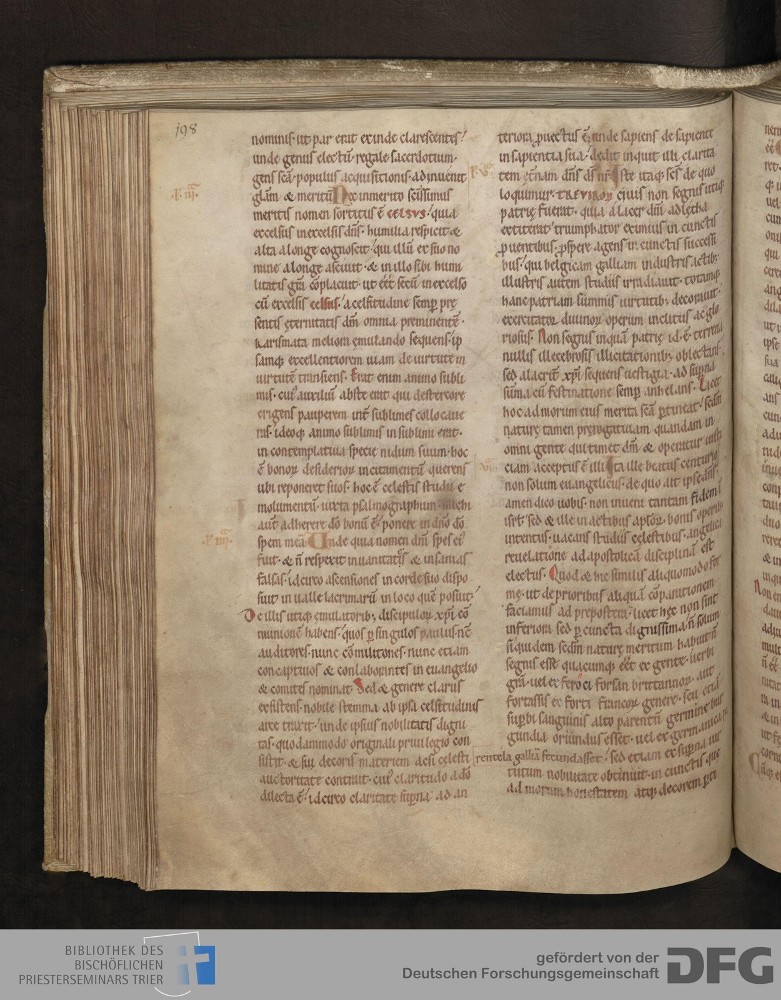 198
nominis ut par erat exinde clarescentes.
unde genus electū regale sacerdotium.
gens scā populus acquisitionis. adinuenit
glām & meritū Nec inmerito scīssimus
meritis nomen sortitus ē CELSUS. quia
excelsus inexcelsis dn̄s. humilia respicit &
alta alonge cognoscit. qui illū ex suo no
mine alonge asciuit. & in illo sibi humi
litatis grā cōplacuit. ut eēt secū inexcelso
cū excelsis celsus. acelsitudine semp̄ prę
sentis ęternitatis dm̄ omnia preminentē.
karismata meliora ęmulando sequens. ip
samq; excellentiorem uiam de uirtute in
uirtutē transiens. Erat enim animo subli
mis. cui auxiliū abste erat qui destercore
erigens pauperem int̄ sublimes collocaue
ras. ideoq; animo sublimis insublimi erat.
in contemplatiua specie nidum suum. hoc
ē bonoꝝ desiderioꝝ incitamentū querens
ubi reponeret suos. hoc ē celestis studii e
molumentū. iuxta psalmographum. michi
autē adherere dō bonū ē. ponere in dn̄o dō
spem meā. Unde quia nomen dn̄i spes eiꝰ
fuit. & n̄ respexit inuanitates & insanias
falsas. idcirco ascensiones in corde suo dispo
suit in ualle lacrimarū in loco quē posuit.
De illis utiq; ęmulatorib; discipuloꝝ xp̄i cō
munionē habens. quos p̄ singulos paulus nc̄
auditores. nunc cōmilitones. nunc etiam
concaptiuos & conlaborantes in euangelio
& comites nominat. Sed & genere clarus
existens. nobile stemma ab ipsa celsitudinis
arce traxit. unde ipsius nobilitatis digni
tas. quodammodo originali priuilegio con
sistit. & sui decoris materiem acsi celesti
auctoritate continuit. cui claritudo a dō
dilecta ē. idcirco claritate sup̄na. ad an
teriora prouectus ē. unde sapiens de sapiente
in sapientia sua. dedit inquit illi clarita
tem ęternam dn̄s ds̄ nr̄. Iste itaq; scs̄ de quo
loquimur. TREVIROR ciuis non segnis utiq;
patrię fuerat. quia alacer dm̄ adlecha
extiterat. triumphator eximius in cunctis
ꝓuentibus. ꝓspere agens in cunctis successi
bus. qui belgicam galliam industris actib;
illustris autem studiis irradiauit. totamq;
hanc patriam summis uirtutib; decorauit.
exercitator diuinoꝝ operum inclitus ac glo
riosus. Non segnis inquā patrię id ē terrena
nullis illecebrosis illicitationib; oblectans
sed alacrit̄ xp̄i sequens uestigia. ad sup̄na
summa cū festinatione semp̄ anhelans. Licet
hoc ad morum eius merita scā p̄tineat. sedm̄
naturę tamen prerogatiuam quandam in
omni gente qui timet dm̄ & operatur iusti
ciam acceptus ē illi. Ita ille beatus centurio
non solum euangelicus. de quo ait ipse dn̄s.
amen dico uobis. non inueni tantam fidem in
isrl̄. sed & ille in actibus aptōꝝ. bonis operib;
intentus. uacans studiis cęlestibus. angelica
reuelatione ad apostolicā disciplinā est
electus. Quod & hic similis aliquomodo for
mę. ut de prioribus aliquā cōparationem
faciamus ad prepostera. licet hęc non sint
inferiora. sed p̄ cuncta dignissima. n̄ solum
siquidem sedm̄ naturę meritum habuit n̄
segnis esse quacumq; eēt ex gente. uerbi
grā. uel ex feroci forsan brittannoꝝ. aut
fortassis ex forti francoꝝ genere. seu etiā
sup̄bi sanguinis alto parentū germine bur
gundia oriundus esset. uel ex germanica pa
rentela galliā fecundasset. sed etiam ex sup̄na uir
tutum nobilitate obtinuit. in cunctis que
ad morum honestatem atq; decorem p̄ti
BIBLIOTHEK DES
BISCHÖFLICHEN
PRIESTERSEMINARS TRIER
gefördert von der
Deutschen Forschungsgemeinschaft
DFG